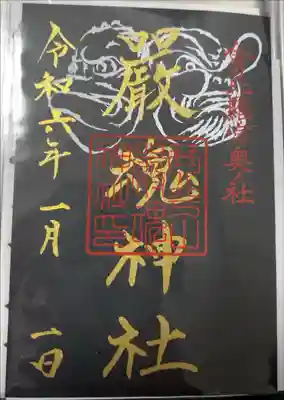 奥社
嚴魂神社
令和六年一月一日